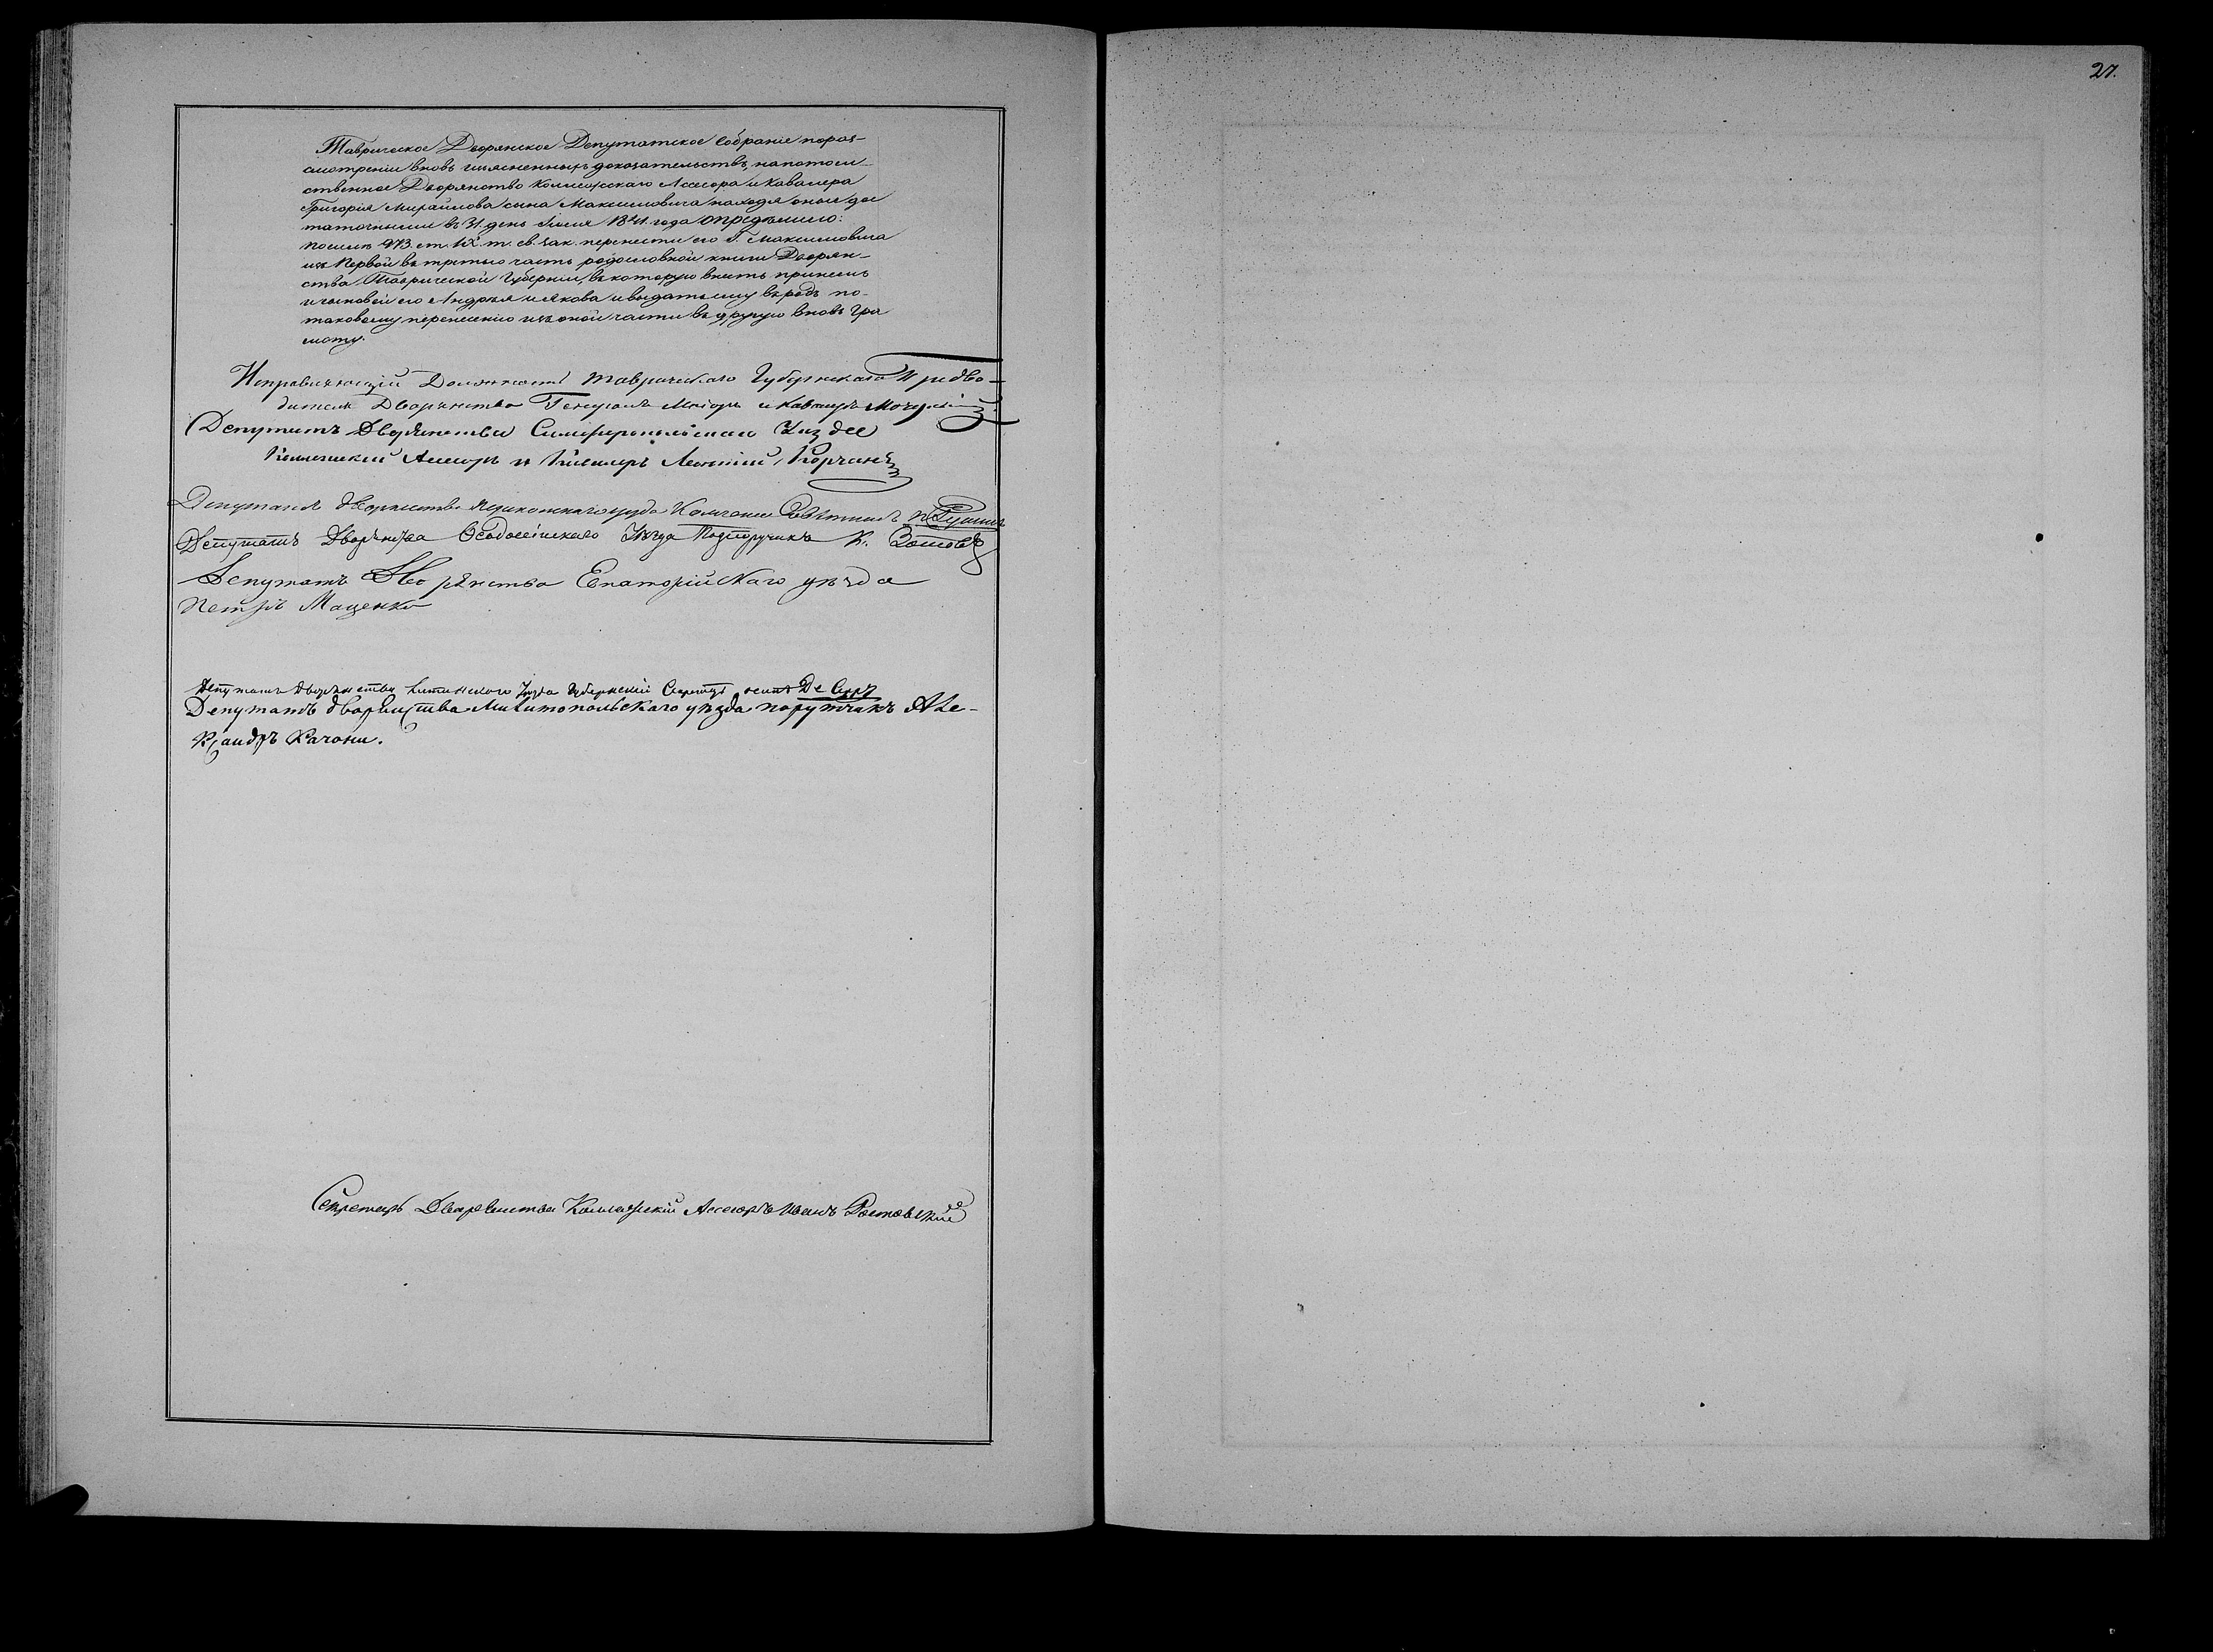 27.
Таврическое Дворянское Депутатское Собраніе поразъ-
смотреніи вновь доказательствъ, напотом-
ственное Дворянство Коллежскаго Ассесора и Кавалера
Григорія Михайлова сына Максимовича находя оныя дос
таточными въ 31. день 1841. года опредѣлило:
ст. IX. т. св. зак. перенести его Г. Максимовича
изъ Первой въ третью часть родословной книги Дворян-
ства Таврической Губерніи, въ которую внесть
и сыновей его Андрея и Якова и выдать ему вѣродъ по-
таковому перенесенію изъ оной части въ другую вновь гра
моту.
Исправляющій Должность Таврическаго Губернскаго Предво-
дителя Дворянства Генералъ Маіоръ и Кавалеръ
Депутатъ Дворянства Симферопольскаго Уезда
Коллежскій Ассесоръ и Кавалеръ Леонтій
Депутатъ Дворянства Совѣтникъ
Депутатъ Дворянства Ѳеодосійскаго Уѣзда Подпоручикъ К. Зотовъ
Депутатъ Дворянства Евпаторійскаго уѣзда
Петръ Маценко
Депутатъ Дворянства Уезда Губернскій Секретарь Де Серръ
Депутатъ дворянства Мелитопольскаго уѣзда порутчикъ Але-
ксандръ Качони.
Секретарь Дворянства Коллежскій Ассесоръ Иванъ Ростовскій